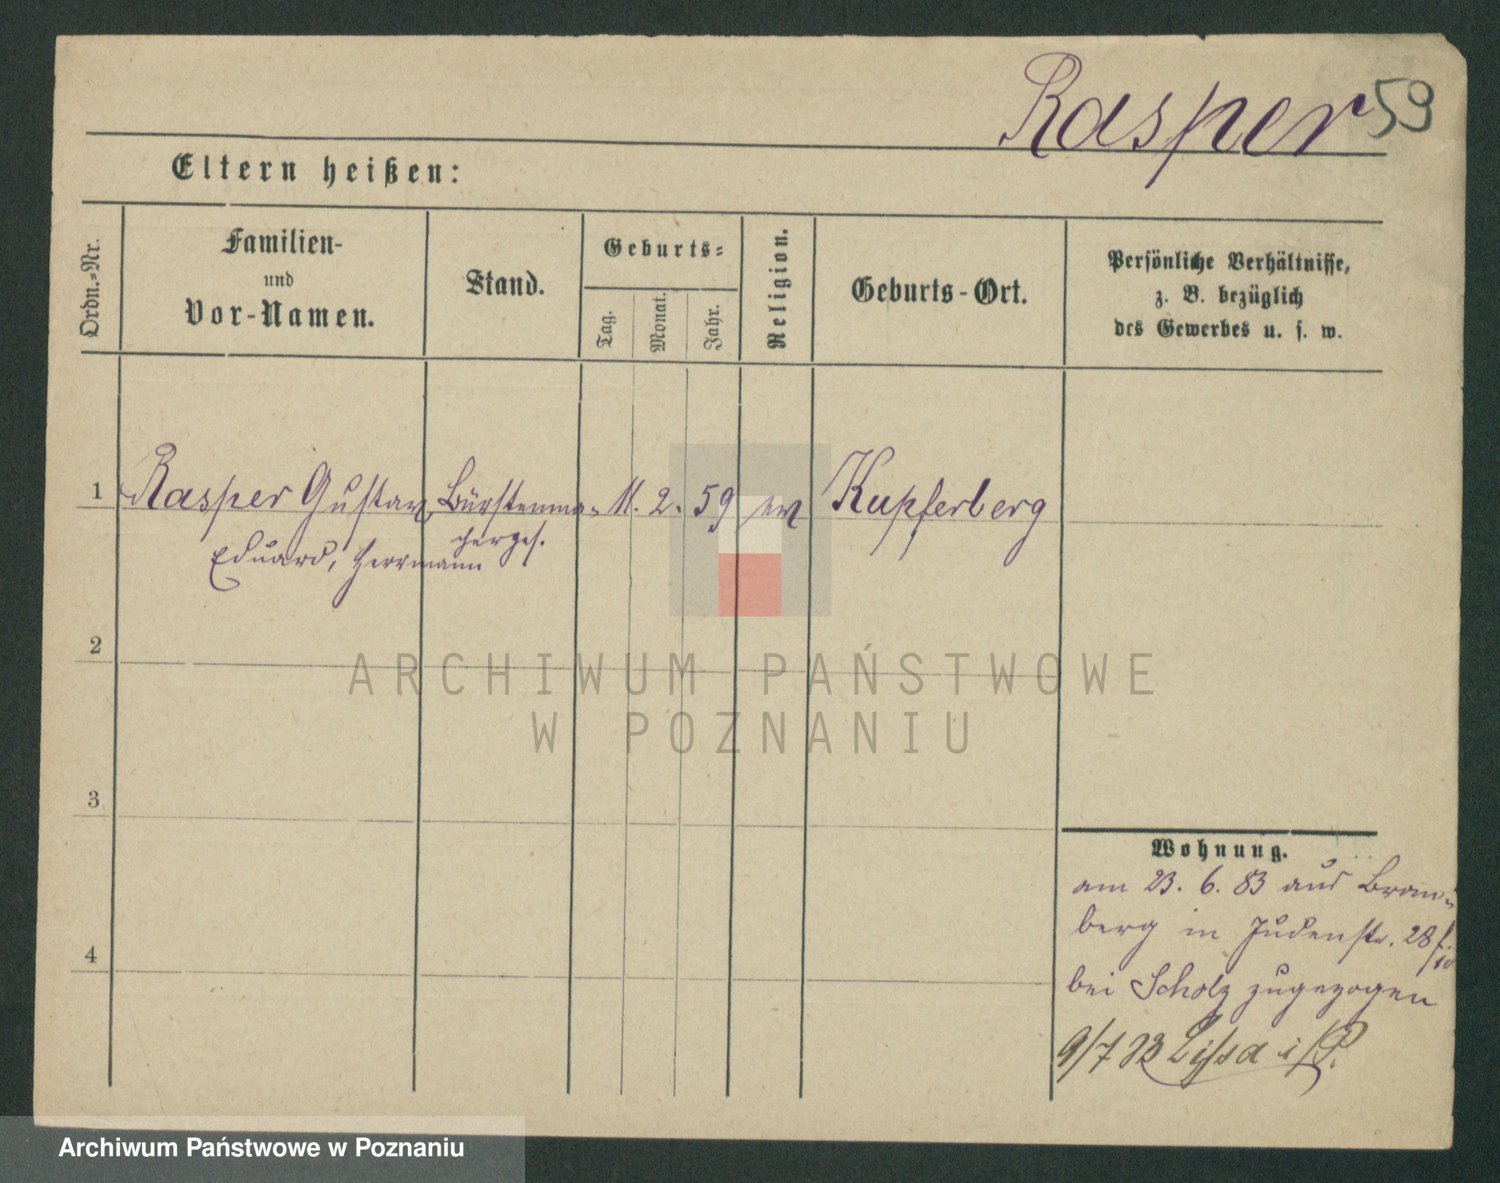 Rasper 59
Eltern heißen:
Ordn.-Nr.
Familien-
und
Vor-Namen.
Stand.
Geburts-
Tag.
Monat.
Jahr.
Religion.
Geburts-Ort.
Persönliche Verhältnisse,
z. B. bezüglich
des Gewerbes u. s. w.
1 Rasper Gustav, Bürstenma- 11. 2. 59 ev Kupferberg
Eduard, Herrmann cherges.
2
3
4
ARCHIWUM PAŃSTWOWE
W POZNANIU
Wohnung.
am 23. 6. 83 aus Brom-
berg in Judenstr. 28
bei Scholz zugezogen
9/7 83 Lissa i/P.
Archiwum Państwowe w Poznaniu